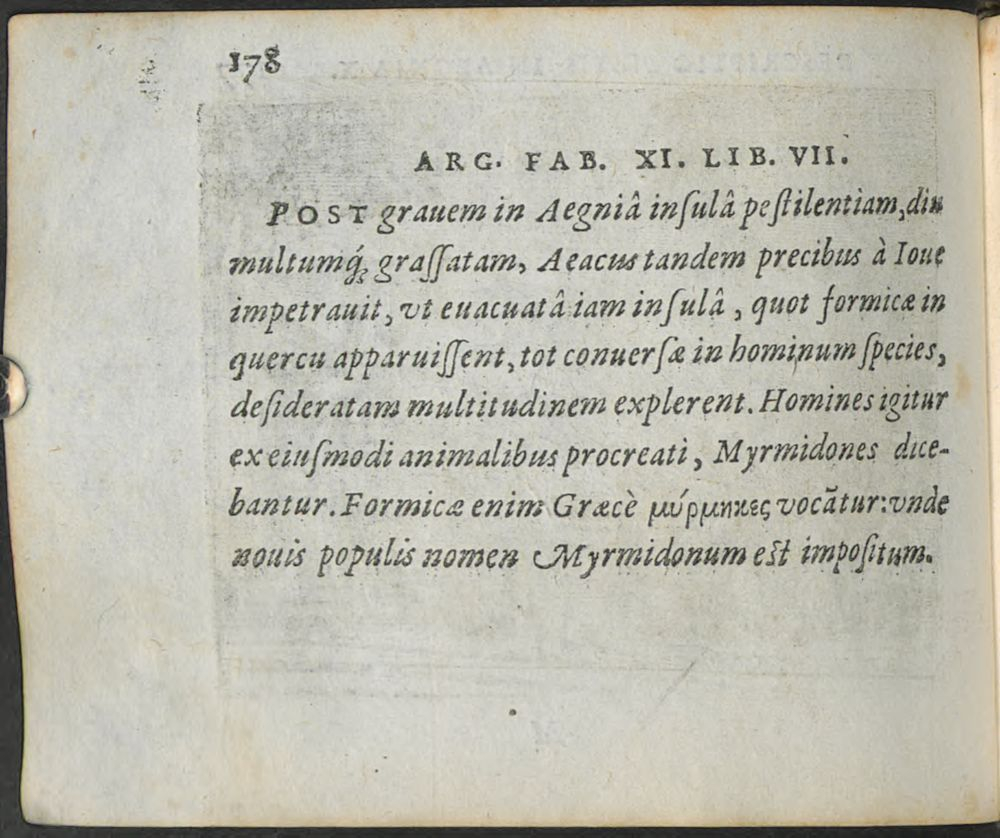 178
ARG. FAB. XI. LIB. VII.
POST grauem in Aegniâ inſulâ peſtilentiam, diu
multumq́; graſſatam, Aeacus tandem precibus à Ioue
impetrauit, vt euacuatâ iam inſulâ, quot formicæ in
quercu apparuiſſent, tot conuerſæ in hominum ſpecies,
deſideratam multitudinem explerent. Homines igitur
ex eiuſmodi animalibus procreati, Myrmidones dice-
bantur. Formicæ enim Græcè μύρμηκες vocãtur: vnde
nouis populis nomen Myrmidonum eſt impoſitum.